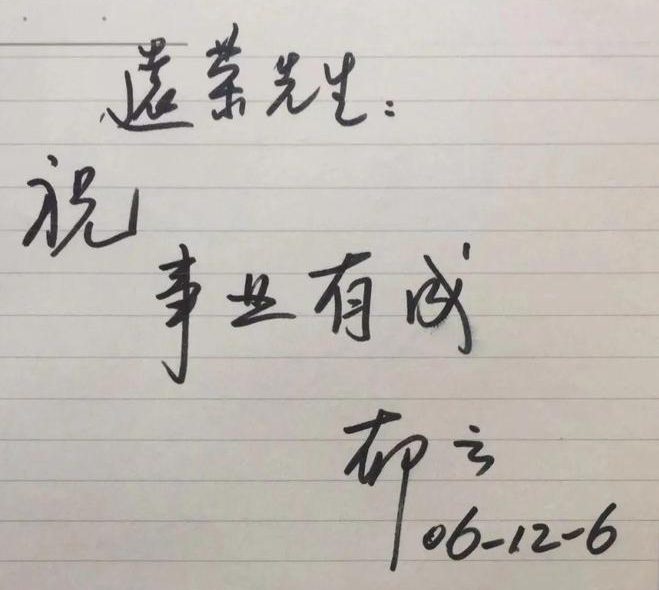 遠荣先生：
祝
事业有成
郁云
06-12-6